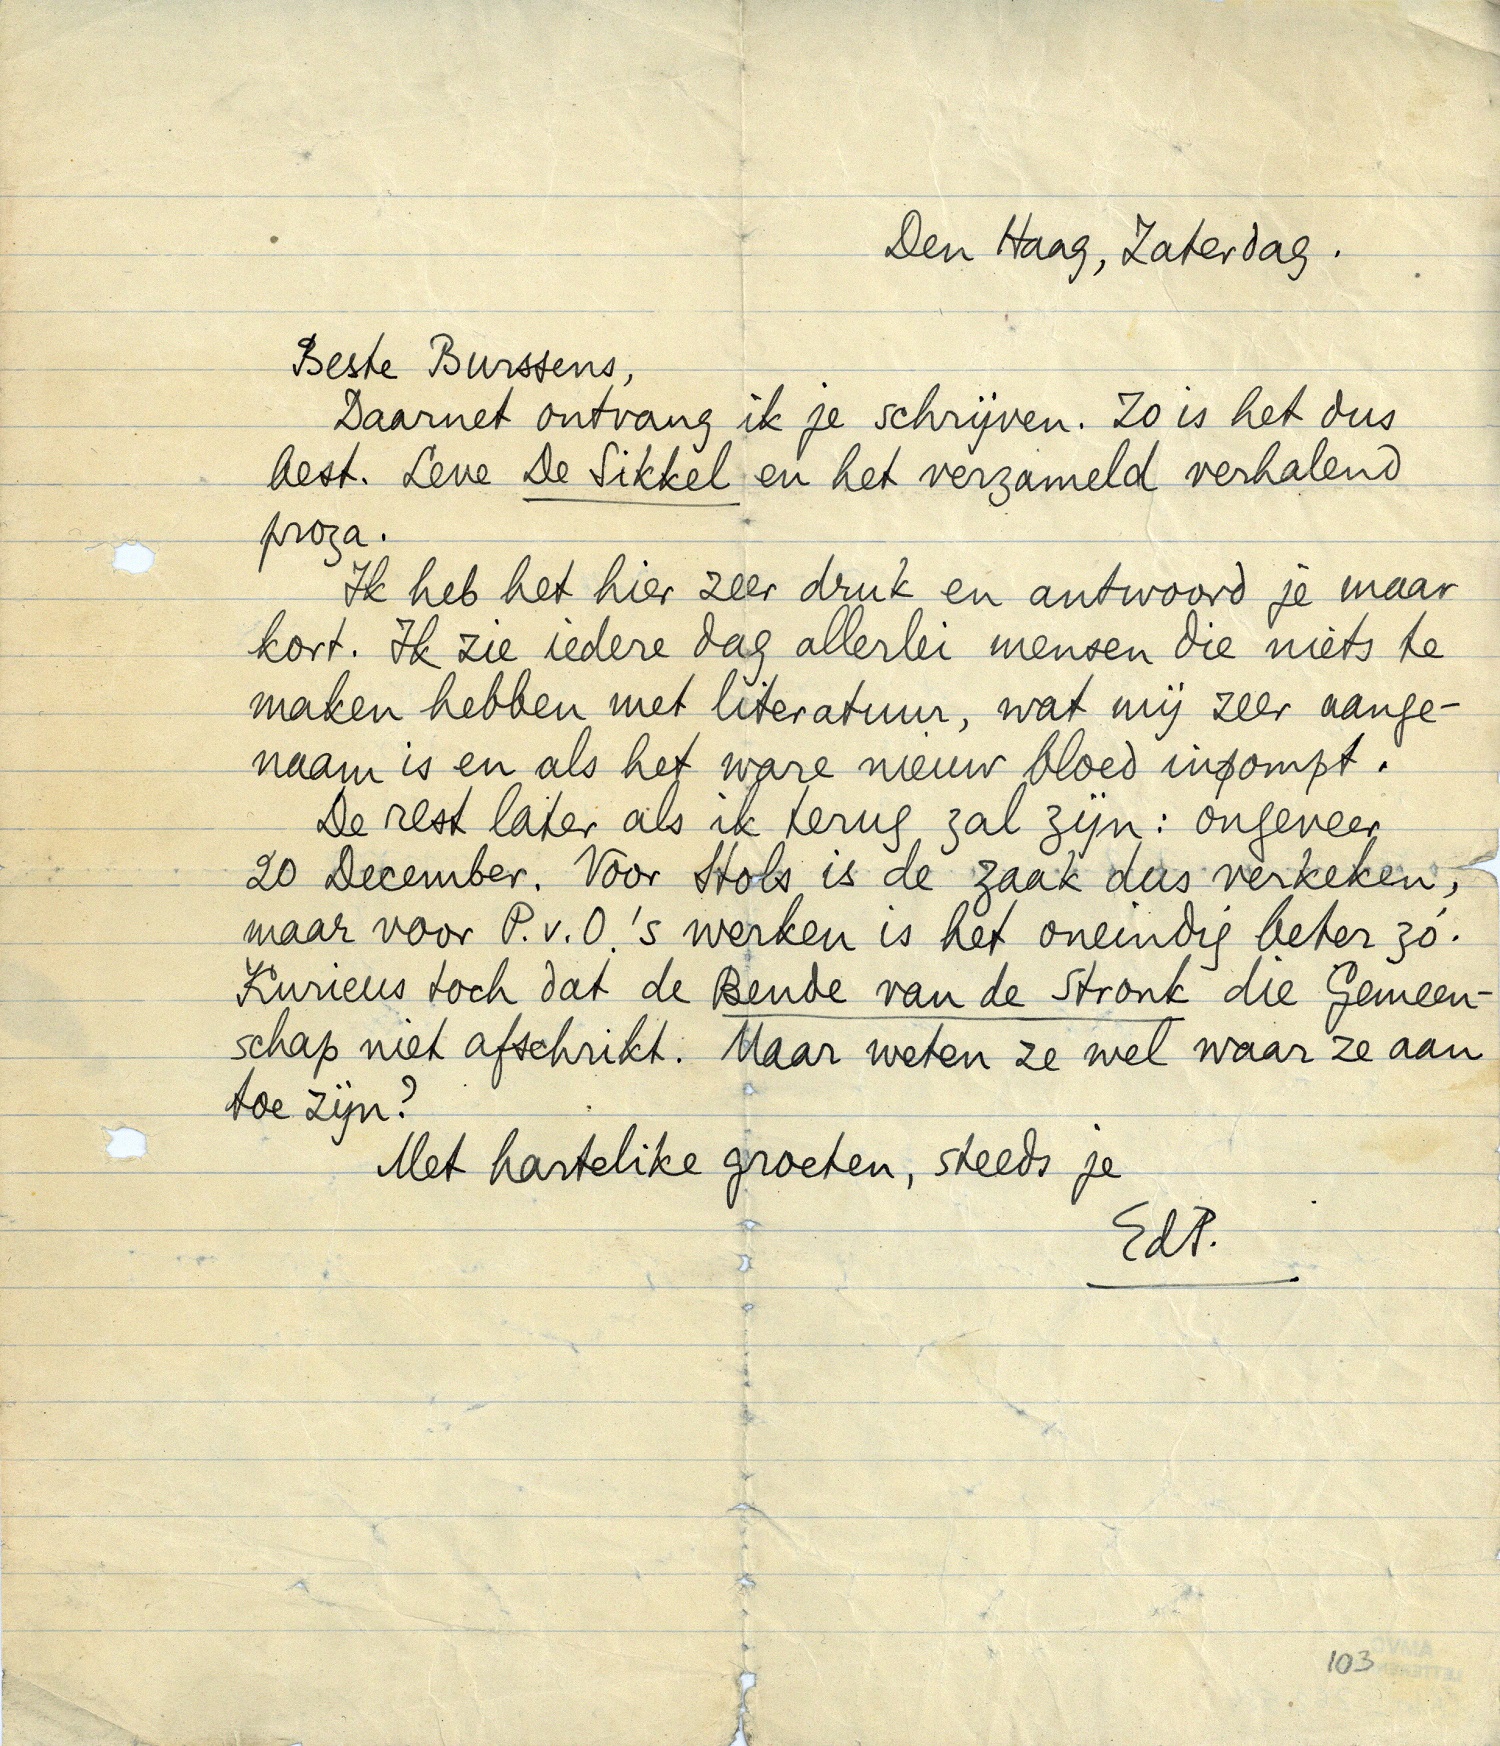 Den Haag, Zaterdag.
Beste Burssens,
Daarnet ontvang ik je schrijven. Zo is het dus
best. Leve De Sikkel en het verzameld verhalend
proza.
Ik heb het hier zeer druk en antwoord je maar
kort. Ik zie iedere dag allerlei mensen die niets te
maken hebben met literatuur, wat mij zeer aange-
naam is en als het ware nieuw bloed inpompt.
De rest later als ik terug zal zijn: ongeveer
20 December. Voor Stols is de zaak dus verkeken,
maar voor P.v.O.'s werken is het oneindig beter zó.
Kurieus toch dat de Bende van de Stronk die Gemeen-
schap niet afschrikt. Maar weten ze wel waar ze aan
toe zijn?
Met hartelike groeten, steeds je
EdP.
103